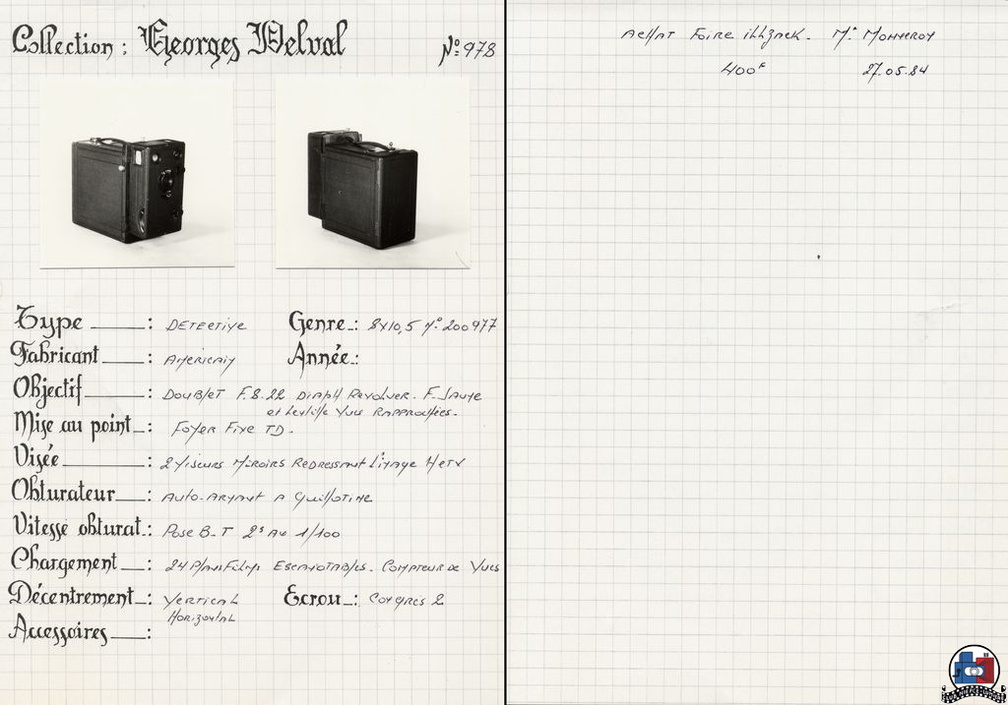 Collection : Georges Delval
N° 978
Type : DETECTIVE
Genre : 8x10,5 N° 200977
Fabricant : AMERICAIN
Année :
Objectif : DOUBLET F.8.22 DIAPH REVOLVER. F. JAUNE
et Lentille Vues RAPPROCHÉES.
Mise au point : FOYER FIXE TD.
Visée : 2 Viseurs Miroirs Redressant L'image H et V
Obturateur : AUTO-ARMANT A Guillotine
Vitesse obturat. : Pose B-T 2s Au 1/100
Chargement : 24 PlansFilms EscamotAbles. Compteur de Vues
Décentrement : VERTICAL
HorizontAL
Ecrou : Congrès 2
Accessoires :
AcHAT Foire
400F 27.05.84